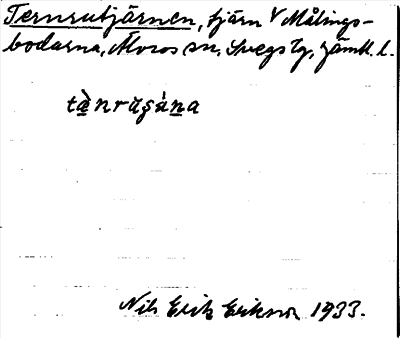 Ternrutjärnen, tjärn V Målings-
bodarna, Älvros sn, Svegs tg, Jämtl. l.
tа̀nrŭʂȧ́na
Nils Erik Erikson 1933.